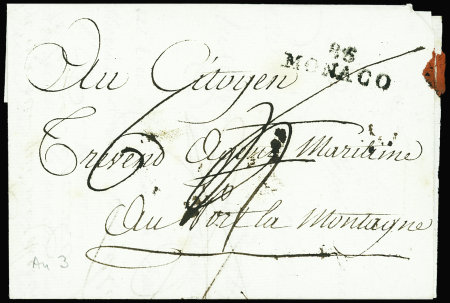 85
MONACO
Au Citoyen
Trevend Agent Maritime
Au Port la Montagne
An 3